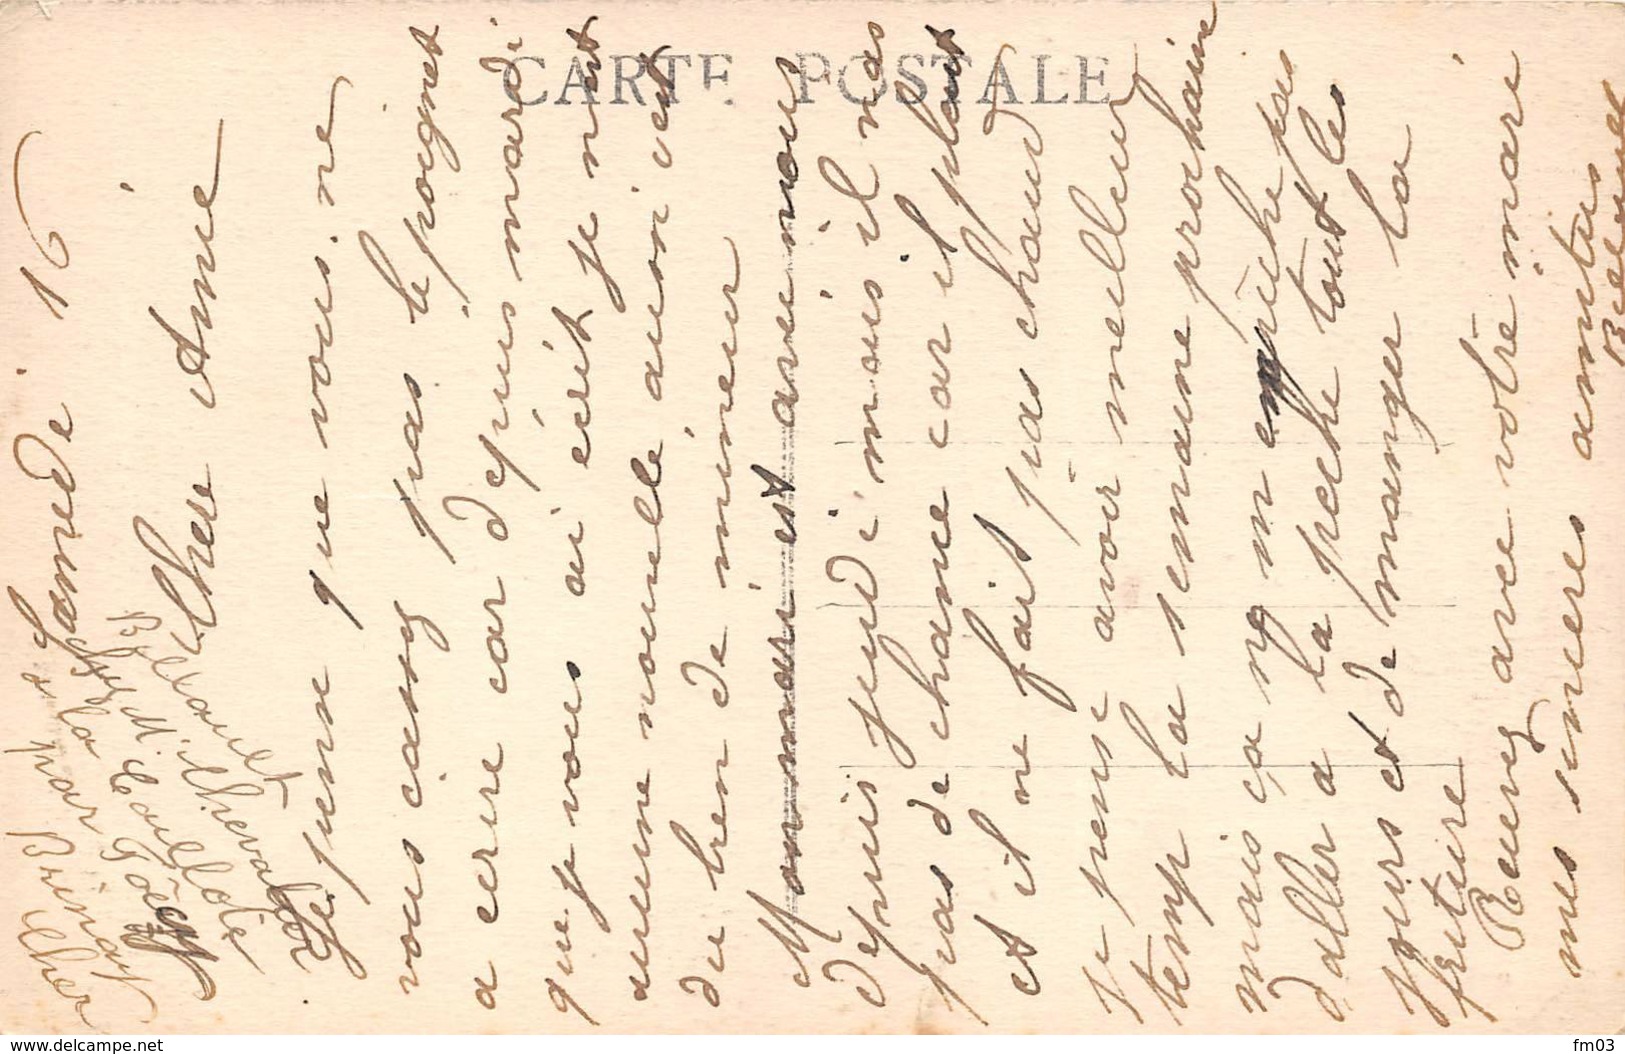 CARTE POSTALE
Samedi 16
Chere Amie
Je pense que vous ne
vous cassez pas le pognet
a ecrire car depuis mardi
que je vous ai écrit je n'ait
aucune nouvelle aussi veut
du bien de mineur
Mon mari est avec nous
depuis jeudi mais il n'as
pas de chance car il plaut
et il ne fait pas chaud
je pense avoir meilleur
temp la semaine prochaine
mais ça ne m enpèche pas
d'aller a la peche tout les
jours et de manger la
friture
Recevez avec votre mari
mes sinceres amitiés
Bélouet
Bélouet
chez M.
a la
par Brinay
Cher
www.delcampe.net
fm03